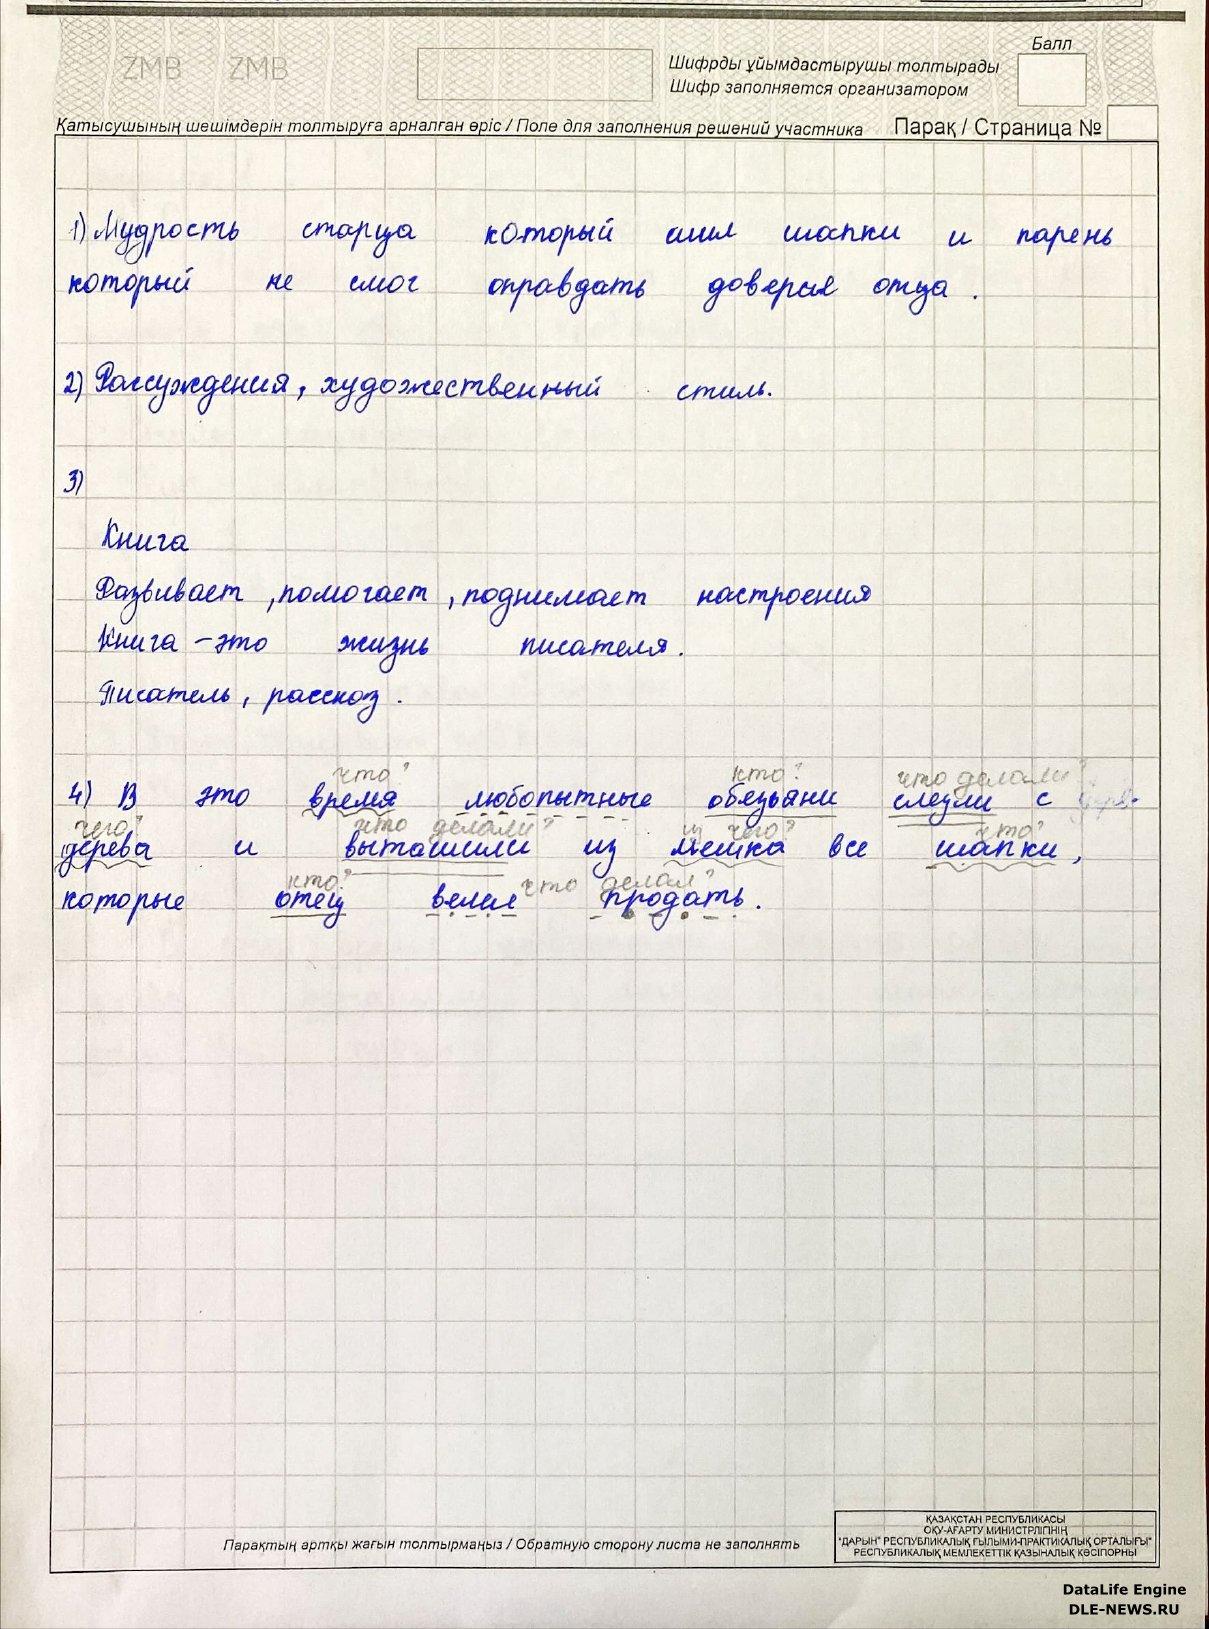 ZMB ZMB
Балл
Шифрды ұйымдастырушы толтырады
Шифр заполняется организатором
Қатысушының шешімдерін толтыруға арналған өріс / Поле для заполнения решений участника Парақ / Страница №
1) Мудрость старца который шил шапки и парень
который не смог оправдать доверия отца .
2) Рассуждения, художественный стиль.
3)
Книга
Развивает , помогает , поднимает настроения
Книга – это жизнь писателя .
Писатель , рассказ .
что? кто? что делали?
4) В это время любопытные обезьяни слезли с
чего? что делали? из чего? что?
дерева и выташили из мешка все шапки ,
кто? что делал?
которые отец велел продать .
Парақтың артқы жағын толтырмаңыз / Обратную сторону листа не заполнять
ҚАЗАҚСТАН РЕСПУБЛИКАСЫ
ОҚУ-АҒАРТУ МИНИСТРЛІГІНІҢ
"ДАРЫН" РЕСПУБЛИКАЛЫҚ ҒЫЛЫМИ-ПРАКТИКАЛЫҚ ОРТАЛЫҒЫ"
РЕСПУБЛИКАЛЫҚ МЕМЛЕКЕТТІК ҚАЗЫНАЛЫҚ КӘСІПОРНЫ
DataLife Engine
DLE-NEWS.RU